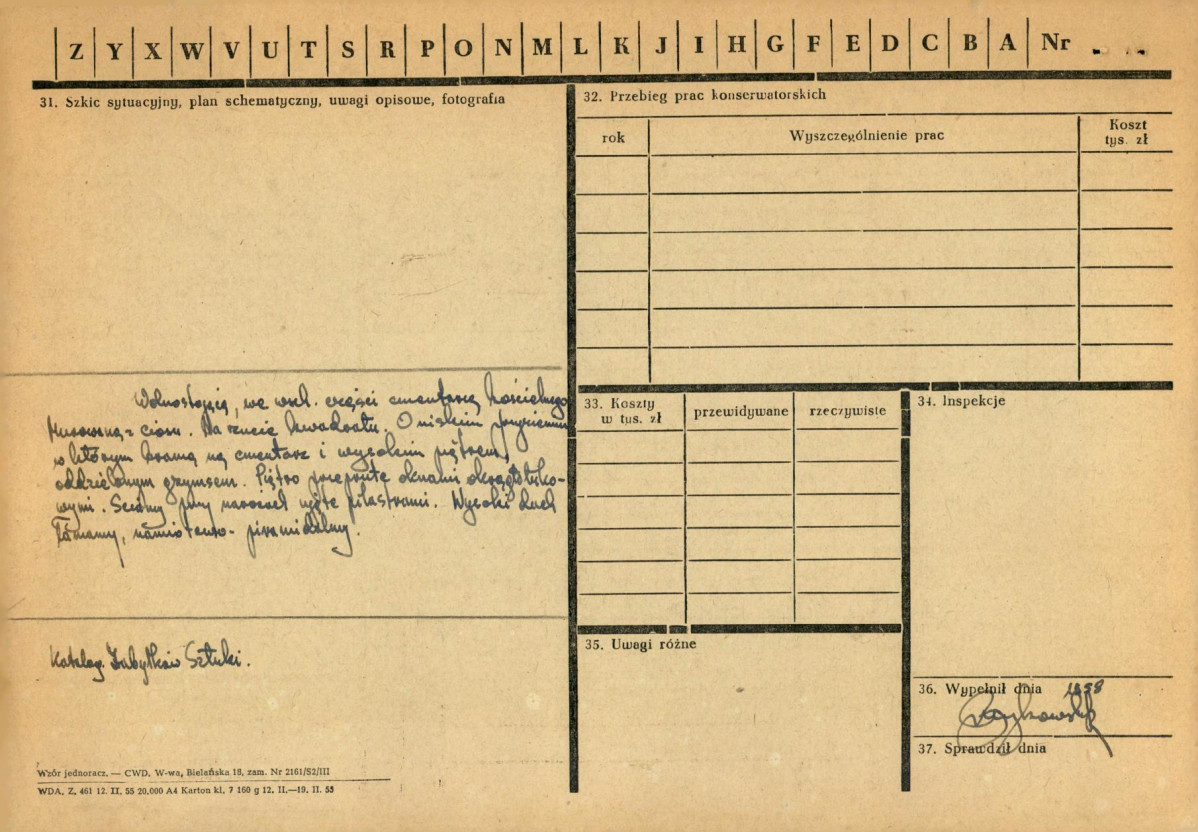 Z Y X W V U T S R P O N M L K J I H G F E D C B A Nr
31. Szkic sytuacyjny, plan schematyczny, uwagi opisowe, fotografia
Wolnostojąca, we wsch. części cmentarza kościelnego
Murowana z ciosu. Na rzucie kwadratu. O niskim przyziemiu
w którym brama na cmentarz i wysokim piętrem,
oddzielonym gzymsem. Piętro przeprute oknami okrągłołuko-
wymi. Ściany przy narożach ujęte pilastrami. Wysoki dach
łamany, namiotowo-piramidalny.
Katalog Zabytków Sztuki.
Wzór jednoracz. — CWD. W-wa, Bielańska 18, zam. Nr 2161/S2/III
WDA. Z. 461 12. II. 55 20.000 A4 Karton kl. 7 160 g 12. II.—19. II. 55
32. Przebieg prac konserwatorskich
rok Wyszczególnienie prac Koszt
tys. zł
33. Koszty
w tys. zł przewidywane rzeczywiste
34. Inspekcje
35. Uwagi różne
36. Wypełnił dnia 1958
37. Sprawdził dnia